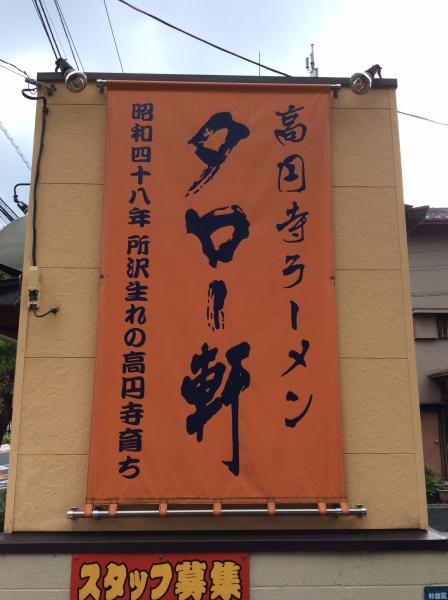 高円寺ラーメン
タロー軒
昭和四十八年 所沢生れの高円寺育ち
スタッフ募集